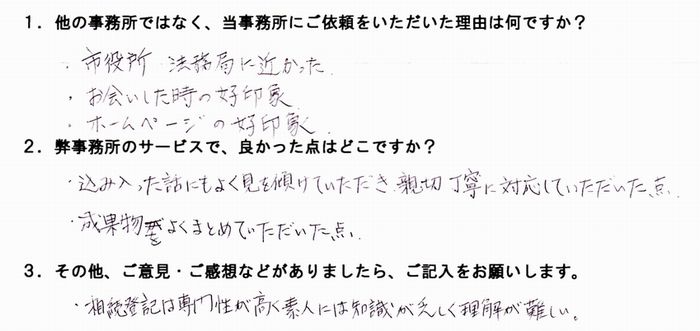 1．他の事務所ではなく、当事務所にご依頼をいただいた理由は何ですか？
・市役所 法務局に近かった.
・お会いした時の好印象
・ホームページの好印象.
2．弊事務所のサービスで、良かった点はどこですか？
・込み入った話にもよく見を傾けていただき 親切 丁寧に対応していただいた点.
・成果物をよくまとめていただいた点.
3．その他、ご意見・ご感想などがありましたら、ご記入をお願いします。
・相続登記は専門性が高く素人には知識が乏しく理解が難しい。